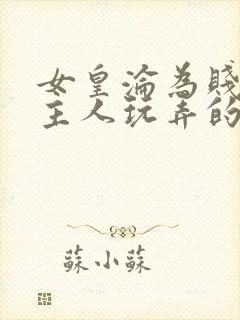 女皇淪為賤
主人玩弄的
蘇小蘇